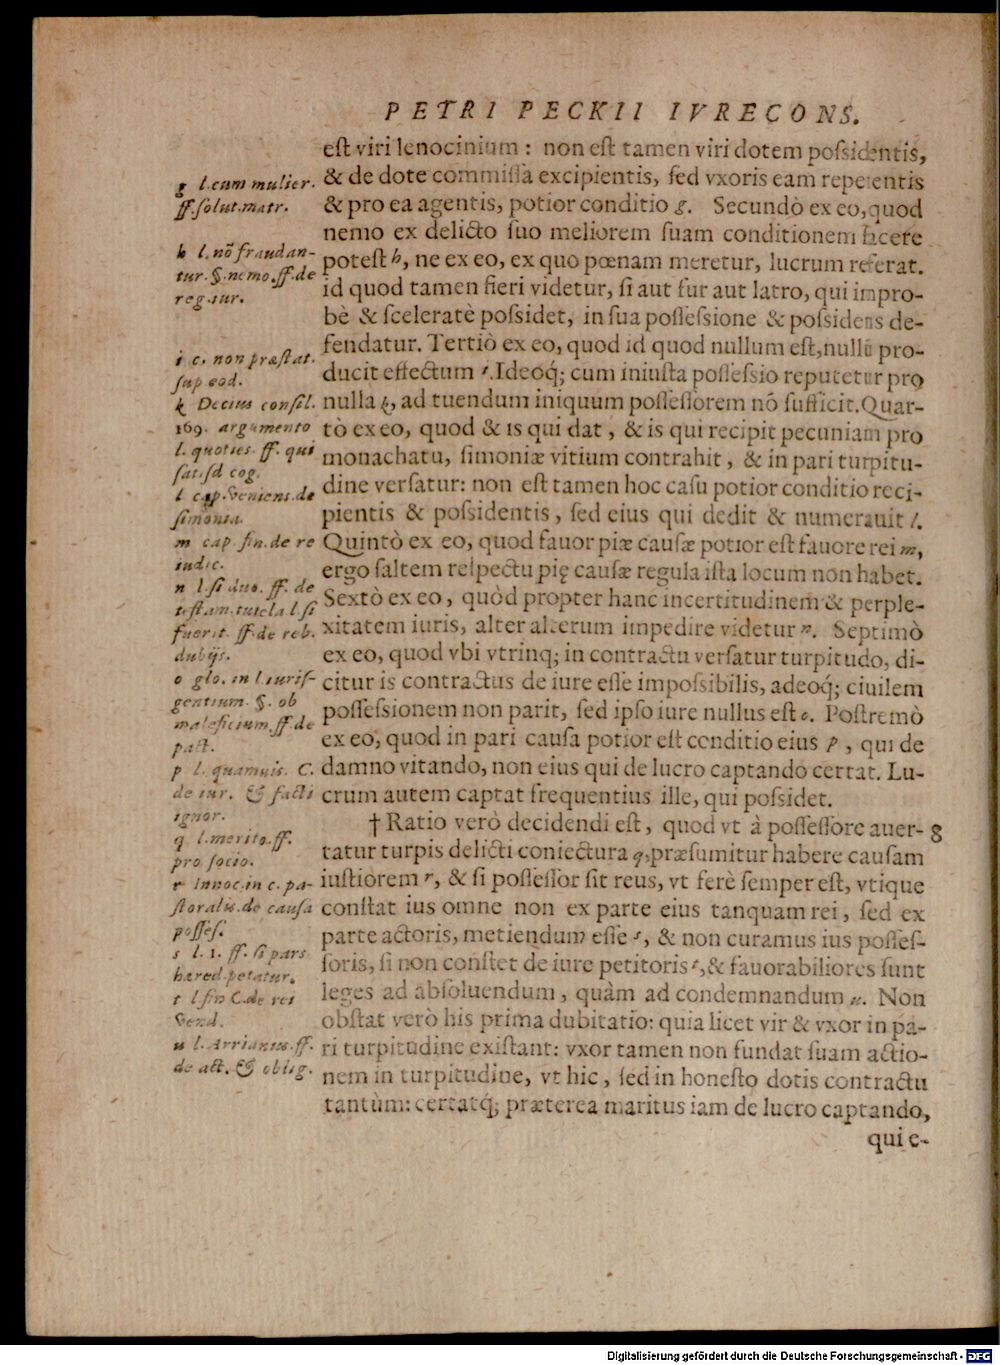 PETRI PECKII IVRECONS.
est viri lenocinium : non est tamen viri dotem possidentis,
& de dote commissa excipientis, sed vxoris eam repetentis
& pro ea agentis, potior conditio g. Secundò ex eo, quod
nemo ex delicto suo meliorem suam conditionem facere
potest h, ne ex eo, ex quo pœnam meretur, lucrum referat.
id quod tamen fieri videtur, si aut fur aut latro, qui impro-
bè & sceleratè possidet, in sua possessione & possidens de-
fendatur. Tertiò ex eo, quod id quod nullum est, nullũ pro-
ducit effectum i. Ideoq́; cum iniusta possessio reputetur pro
nulla k, ad tuendum iniquum possessorem nõ sufficit. Quar-
tò ex eo, quod & is qui dat, & is qui recipit pecuniam pro
monachatu, simoniæ vitium contrahit, & in pari turpitu-
dine versatur: non est tamen hoc casu potior conditio reci-
pientis & possidentis, sed eius qui dedit & numerauit l.
Quintò ex eo, quod fauor piæ causæ potior est fauore rei m,
ergo saltem respectu pię causæ regula ista locum non habet.
Sextò ex eo, quòd propter hanc incertitudinem & perple-
xitatem iuris, alter alterum impedire videtur n. Septimò
ex eo, quod vbi vtrinq; in contractu versatur turpitudo, di-
citur is contractus de iure esse impossibilis, adeoq́; ciuilem
possessionem non parit, sed ipso iure nullus est o. Postremò
ex eo, quod in pari causa potior est conditio eius p, qui de
damno vitando, non eius qui de lucro captando certat. Lu-
crum autem captat frequentius ille, qui possidet.
† Ratio verò decidendi est, quod vt à possessore auer- g
tatur turpis delicti coniectura q, præsumitur habere causam
iustiorem r, & si possessor sit reus, vt ferè semper est, vtique
constat ius omne non ex parte eius tanquam rei, sed ex
parte actoris, metiendum esse s, & non curamus ius posses-
soris, si non constet de iure petitoris t, & fauorabiliores sunt
leges ad absoluendum, quàm ad condemnandum u. Non
obstat verò his prima dubitatio: quia licet vir & vxor in pa-
ri turpitudine existant: vxor tamen non fundat suam actio-
nem in turpitudine, vt hic, sed in honesto dotis contractu
tantùm: certatq́; præterea maritus iam de lucro captando,
qui e-
g l. cum mulier.
ff. solut. matr.
h l. nõ fraudan-
tur. §. nemo. ff. de
reg. iur.
i c. non præstat.
sup eod.
k Decius consil.
169. argumento
l. quoties. ff. qui
sat. sd cog.
l cap. veniens. de
simonia.
m cap. fin. de re
iudic.
n l. si duo. ff. de
testam. tutela l. si
fuerit. ff. de reb.
dubijs.
o glo. in l. iuris-
gentium. §. ob
maleficium. ff. de
pact.
p l. quamuis. C.
de iur. & facti
ignor.
q l. merito. ff.
pro socio.
r Innoc. in c. pa-
storalis. de causa
posses.
s l. 1. ff. si pars
hæred. petatur.
t l. fin C. de rei
vend.
u l. Arrianus. ff.
de act. & oblig.
Digitalisierung gefördert durch die Deutsche Forschungsgemeinschaft - DFG